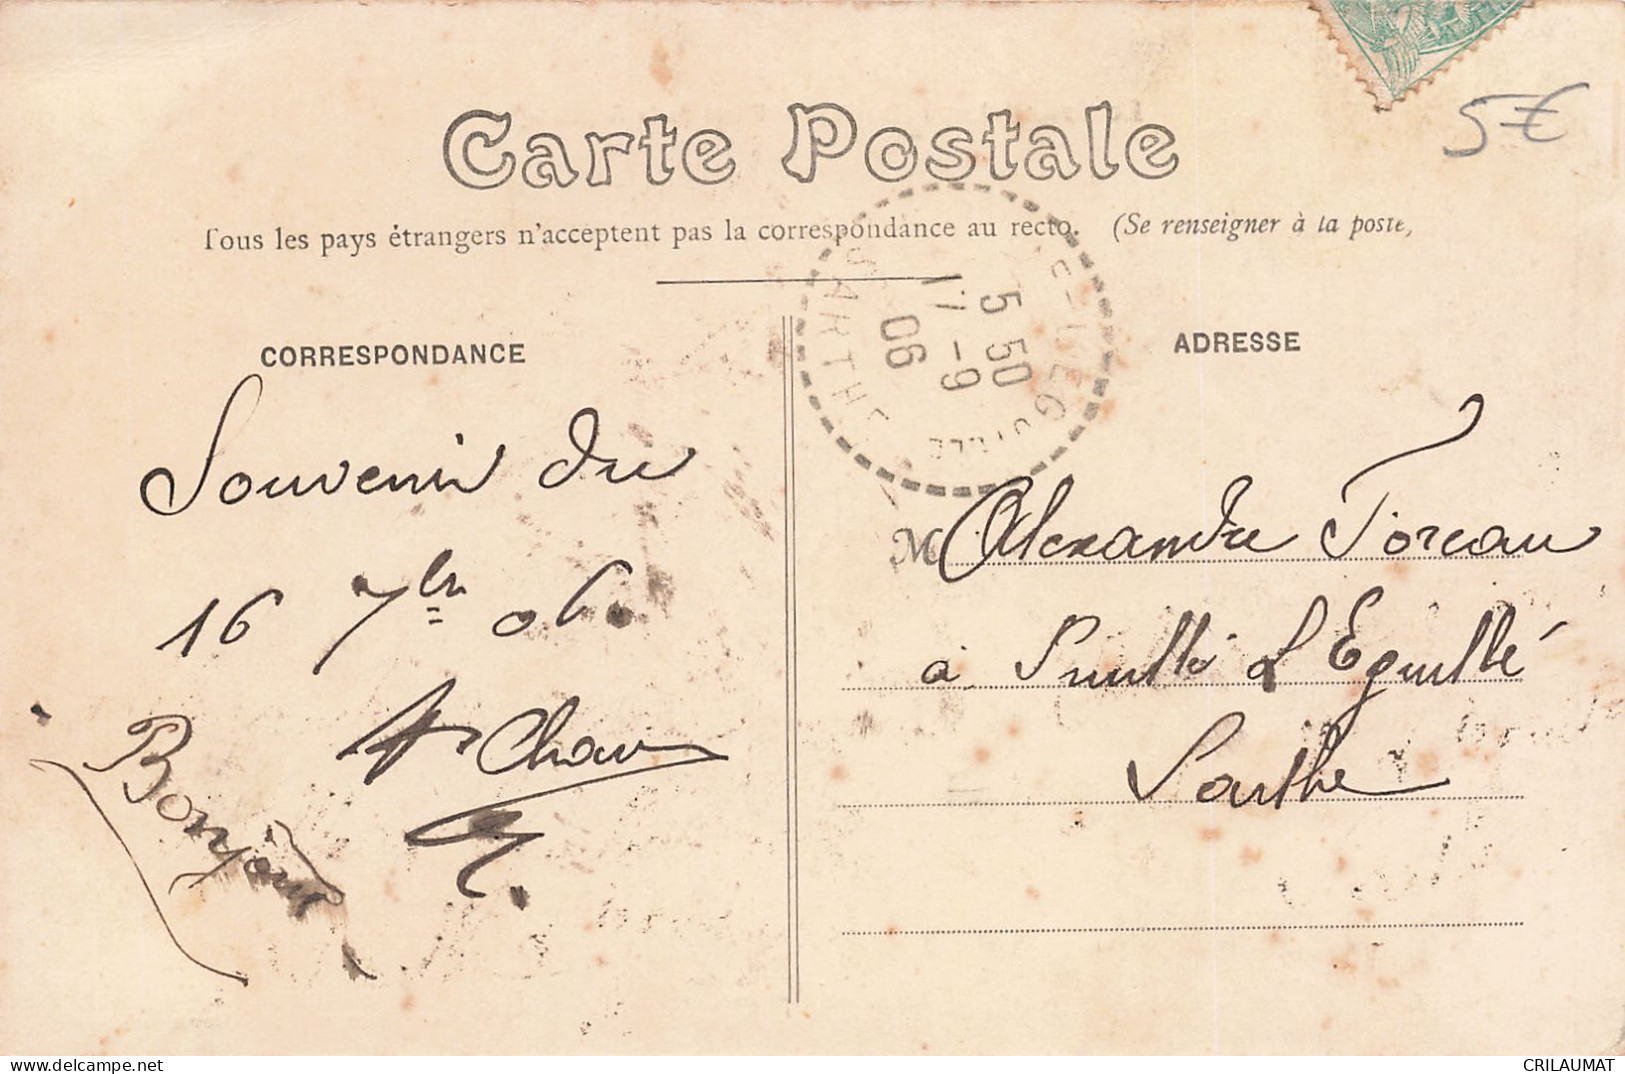 Carte Postale
5€
Tous les pays étrangers n'acceptent pas la correspondance au recto. (Se renseigner à la poste,
5 50
17 -9
06
SARTHE
CORRESPONDANCE
ADRESSE
Souvenir du
16 7bre 06.
Bonjour
M Alexandre Toreau
à Neuillé L'Eguillé
Sarthe
CRILAUMAT